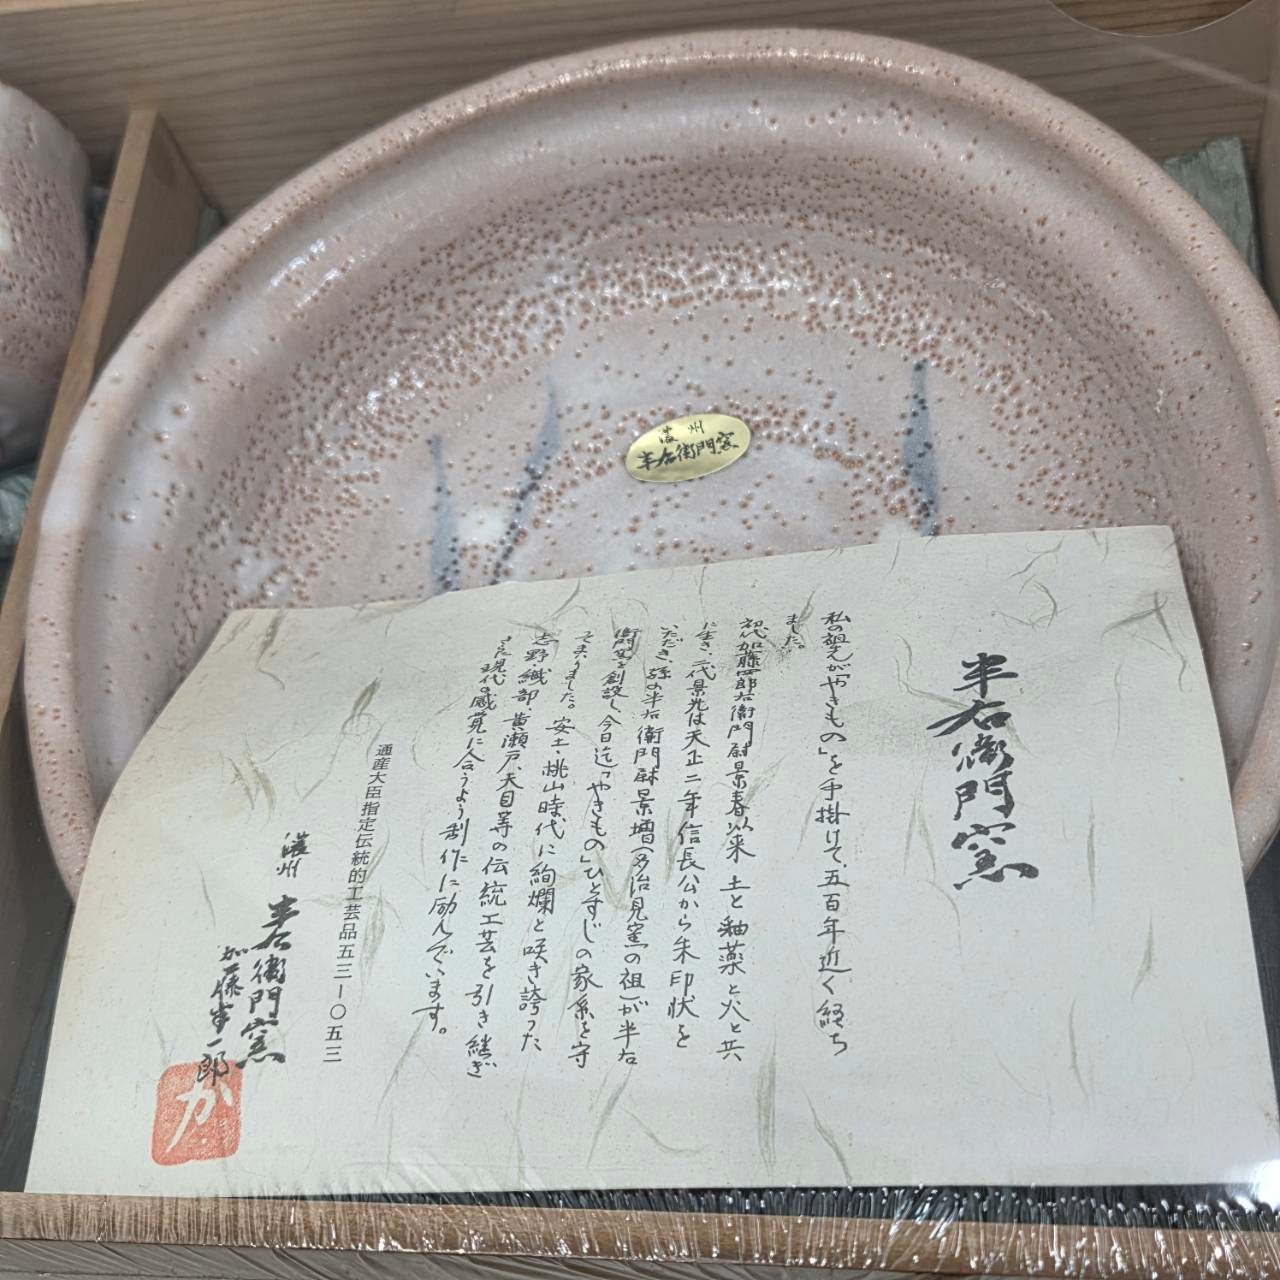 濃州
半右衛門窯
半右衛門窯
私の祖先が「やきもの」を手掛けて、五百年近く経ち
ました。
初代加藤四郎右衛門尉景春以来 土と釉薬と火と共
に生き、二代景光は天正二年信長公から朱印状を
いただき、孫の半右衛門尉景増(多治見窯の祖)が半右
衛門窯を創設し、今日迄「やきもの」ひとすじの家系を守
てまいりました。安土、桃山時代に絢爛と咲き誇った
志野・織部・黄瀬戸、天目等の伝統工芸を引き継ぎ
また現代の感覚に合うよう制作に励んでいます。
通産大臣指定伝統的工芸品五三一〇五三
濃州 半右衛門窯
加藤半一郎
か